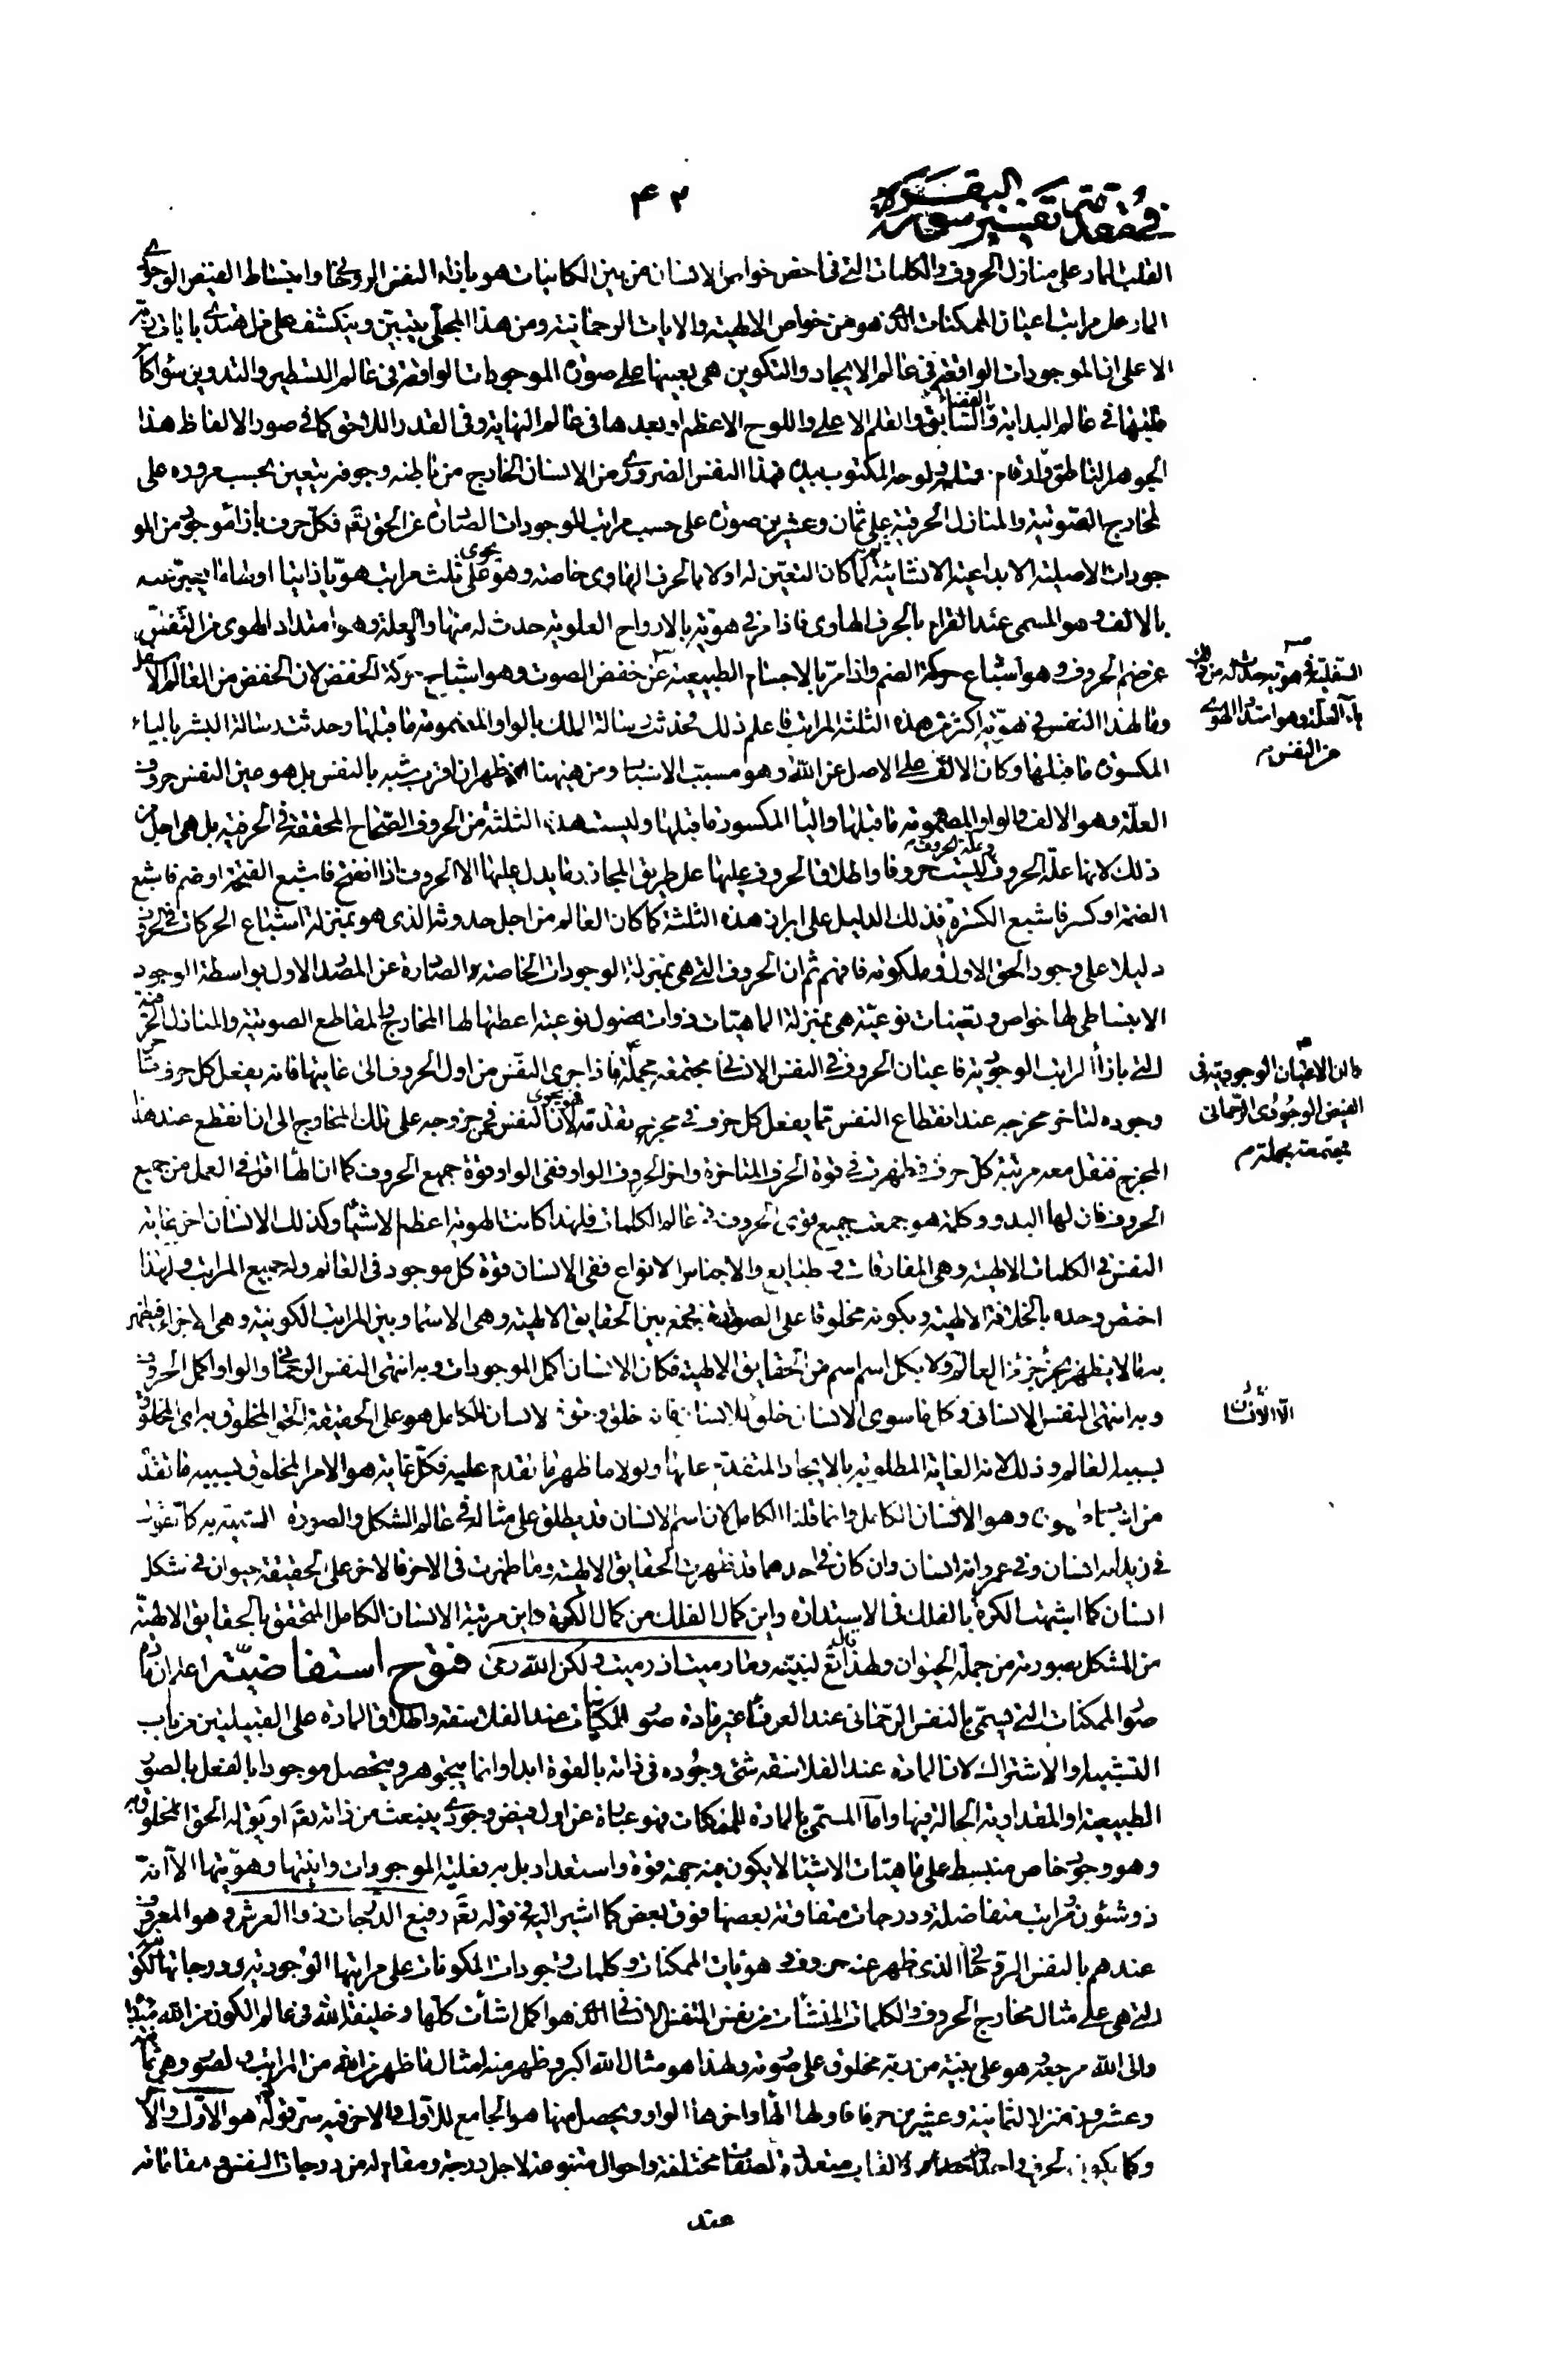 في مقدمات تفسير سورة البقرة
۴۲
القلب المار على منازل الحروف والكلمات التى فى اخص خواص الانسان من بين الكاينات هو باذاء النفس الروحانى وانبساط الفيض الوجودى
المار على مراتب اعيان الممكنات الذى هو من خواص الالهية والايات الرحمانية ومن هذا المجلى يتبين وينكشف على من اهتدى بايات ربه
الاعلى ان الموجودات الواقعة فى عالم الايجاد والتكوين هى بعينها على صورة الموجودات الواقعة فى عالم التسطير والتدوين سواء كان
فى عالم البداية والقضاء السابق والقلم الاعلى واللوح الاعظم او بعدها فى عالم النهاية وفى القدر اللاحق كما فى صور الالفاظ هذا
الجوهر الناطق وارقام قلمه ولوحه المكتوب بيده فهذا النفس الضرورى من الانسان الخارج من باطنه وجوفه يتعين بحسب مروره على
المخارج الصوتية والمنازل الحرفية على ثمان وعشرين صورة على حسب مراتب الموجودات الصادرة عن الحق تعالى فكل حرف باذاء موجود من المو
جودات الاصلية الابداعية الانشائية كما كان التعين له اولا بالحرف الهاوى خاصة وهو يحوى على ثلث مراتب
بالالف وهو المسمى عند القراء بالحرف الهاوى فاذا مر فى هويه بالارواح العلوية حدث له منها واو العلة وهو امتداد الهوى من النفس
عن ضم الحروف وهو اشباع حركة الضم واذا مر بالاجسام الطبيعية عن خفض الصوت وهو اشباع حركة الخفض لان الخفض من العالم الاسفل
وما لهذا النفس فى هويه اكثر من هذه الثلثة المراتب فاعلم ذلك فحدثت رسالة الملك بالواو المضمومة ما قبلها وحدثت رسالة البشر بالياء
المكسورة ما قبلها وكان الالف على الاصل عن الله وهو مسبب الاسباب ومن هيهنا ظهر ان اقرب شبه بالنفس بل هو عين النفس حروف
العلة وهو الالف والواو المضمومة ما قبلها والياء المكسورة ما قبلها وليست هذه الثلثة من الحروف الصحاح المحققة فى الحرفية بل هى اجل من
ذلك لانها علة الحروف وعلة الحروف ليست حروفا واطلاق الحروف عليها على طريق المجاز وما يدل عليها الا الحروف اذا انفتح فاشبع الفتحة او ضم فاشبع
الضمة او كسر فاشبع الكسرة فذلك الدليل على ابراز هذه الثلثة كما كان العالم من اجل حدوثه الذى هو بمنزلة اشباع الحركات فى الحروف
دليلا على وجود الحق الاول وملكوته فافهم ثم ان الحروف التى هى بمنزلة الوجودات الخاصة الصادرة عن المصدر الاول بواسطة الوجود
الانبساطى لها خواص وتعينات نوعية هى بمنزلة الماهيات ذوات فصول نوعية اعطتها لها المخارج والمقاطع الصوتية والمنازل الحرفية
التى باذاء المراتب الوجودية فاعيان الحروف فى النفس الانسانى مجتمعة مجملة فاذا جرى النفس من اول الحروف الى غايتها فانه يفعل كل حرف متاخر
وجوده لتاخر مخرجه عند انقطاع النفس مما يفعل كل حرف فى مخرج تقدمه لان النفس فى خروجه على تلك المخارج الى ان انقطع عند هذا
المخرج فنقل معه مرتبة كل حرف فظهرت فى قوة الحرف المتاخرة واخر الحروف الواو ففى الواو قوة جميع الحروف كما ان الهاء اقل فى العمل من جميع
الحروف فان لها البدو وكلمة هو جمعت جميع قوى الحروف فى عالم الكلمات فلهذا كانت الهوية اعظم الاشياء وكذلك الانسان اخر غاية
النفس فى الكلمات الالهية وهى المفارقات وطبايع والاجناس الانواع ففى الانسان قوة كل موجود فى العالم وله جميع المراتب ولهذا
اختص وحده بالخلافة الالهية وبكونه مخلوقا على الصورة فجمع بين الحقايق الالهية وهى الاسماء وبين المراتب الكونية وهى الاجزاء فيظهر
به ما لا يظهر بجزء جزء من العالم ولا بكل اسم اسم من الحقايق الالهية فكان الانسان اكمل الموجودات وبه انتهى النفس الرحمانى والواو اكمل الحروف
وبه انتهى النفس الانسانى وكل ما سوى الانسان خلق الا الانسان فانه خلق وحق لانسان الكامل هو على الحقيقة الحق المخلوق به اى المخلوق
بسببه العالم وذلك لانه الغاية المطلوبة بالايجاد المتقدمة عليها ولولا ما ظهر ما تقدم عليه فكل غاية هو الامر المخلوق بسببه ما تقدم
من اسباب وهو الانسان الكامل وانما قلنا الكامل لان اسم الانسان قد يطلق على مثاله فى عالم الشكل والصورة الشبيه به كما تقول
فى زيد انه انسان وفى عمرو انه انسان وان كان فى احدهما قد ظهرت الحقايق الالهية وما ظهرت فى الاخر فالاخر على الحقيقة حيوان فى شكل
انسان كما اشبهت الكرة بالفلك فى الاستدارة واين كمال الفلك من كمال الكرة واين مرتبة الانسان الكامل المتحقق بالحقايق الالهية
من المشكل بصورته من جملة الحيوان ولهذا قال تعالى لنبيه وما رميت اذ رميت ولكن الله رمى فتوح استفاضية اعلم ان مادة
صور الممكنات التى تسمى بالنفس الرحمانى عند العرفاء غير مادة صور المكونات عند الفلاسفة واطلاق المادة على القبيلتين من باب
التشبيه او الاشتراك لان المادة عند الفلاسفة شئ وجوده فى ذاته بالقوة ابدا وانما يتجوهر ويتحصل موجودا بالفعل بالصور
الطبيعية او المقدارية الحالة فيها واما المسمى بالمادة للممكنات فهو عبارة عن اول فيض وجودى ينبعث من ذاته تعالى او يقال له الحق المخلوق به
وهو وجود خاص منبسط على ماهيات الاشياء لا يكون فيه جهة قوة واستعداد بل به فعلية الموجودات وانيتها وهويتها الا انه
ذو شئون ومراتب متفاضلة ودرجات متفاوتة بعضها فوق بعض كما اشير اليه فى قوله تعالى رفيع الدرجات ذو العرش وهو المعروف
عندهم بالنفس الرحمانى الذى ظهر عنه حروف هويات الممكنات وكلمات وجودات المكونات على مراتبها الوجودية ودرجاتها الكونية
التى هى على مثال مخارج الحروف والكلمات المنشأت من نفس المتنفس الانسانى الذى هو اكمل النشأت كلها وخليفة الله فى عالم الكون من الله مبداه
والى الله مرجعه هو على بينة من ربه مخلوق على صورته ولهذا هو مثال الله اكبر وظهر منه امثال ما ظهر من الله من المراتب والصور وهى ثمانية
وعشرون منزلا لثمانية وعشرين حرفا فاولها الهاء واخرها الواو ويحصل منها هو الجامع للاول والاخر فيه سر قوله هو الاول والاخر
وكما يكون لحرف واحد القاب متعددة لصفات مختلفة واحوال متنوعة لاجل درجة ومقام له من درجات النفس ومقاماته
عند
السفلية فى هويه حدث له من ذلك
ياء العلة وهو امتداد الهوى
من النفس
كما ان الاعيان الوجودية فى
الفيض الوجودى الرحمانى
مجتمعة مجملة
الا الانسان